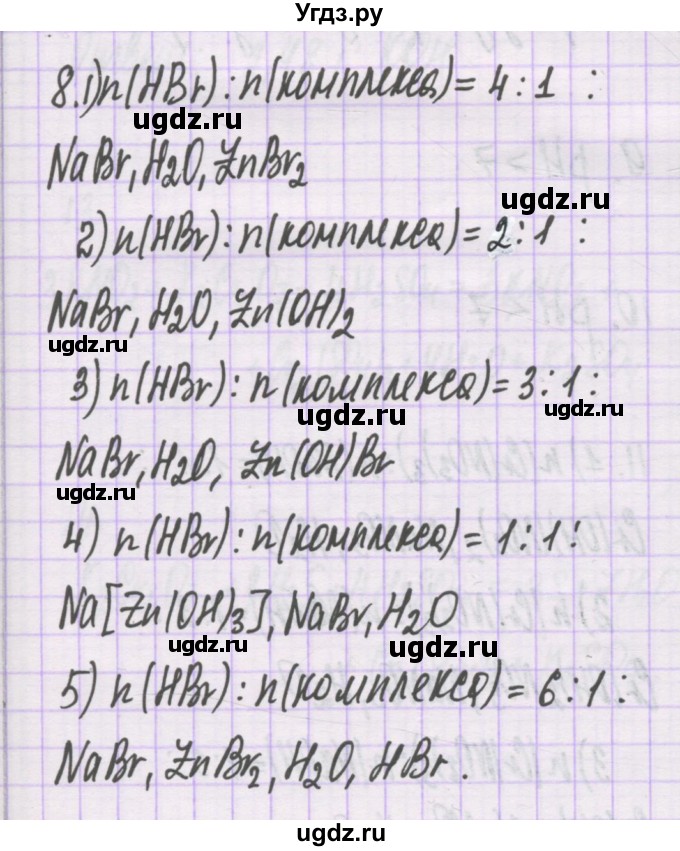 Угдз.ру
8.1) n(HBr) : n(комплекса) = 4 : 1 :
ugdz.ru ugdz.ru
NaBr, H2O, ZnBr2
2) n(HBr) : n(комплекса) = 2 : 1 :
ugdz.ru
NaBr, H2O, Zn(OH)2
ugdz.ru
3) n(HBr) : n(комплекса) = 3 : 1 :
ugdz.ru ugdz.ru
NaBr, H2O, Zn(OH)Br
ugdz.ru
4) n(HBr) : n(комплекса) = 1 : 1 :
ugdz.ru
Na[Zn(OH)3], NaBr, H2O.
ugdz.ru ugdz.ru
5) n(HBr) : n(комплекса) = 6 : 1 :
NaBr, ZnBr2, H2O, HBr.
ugdz.ru
ugdz.ru